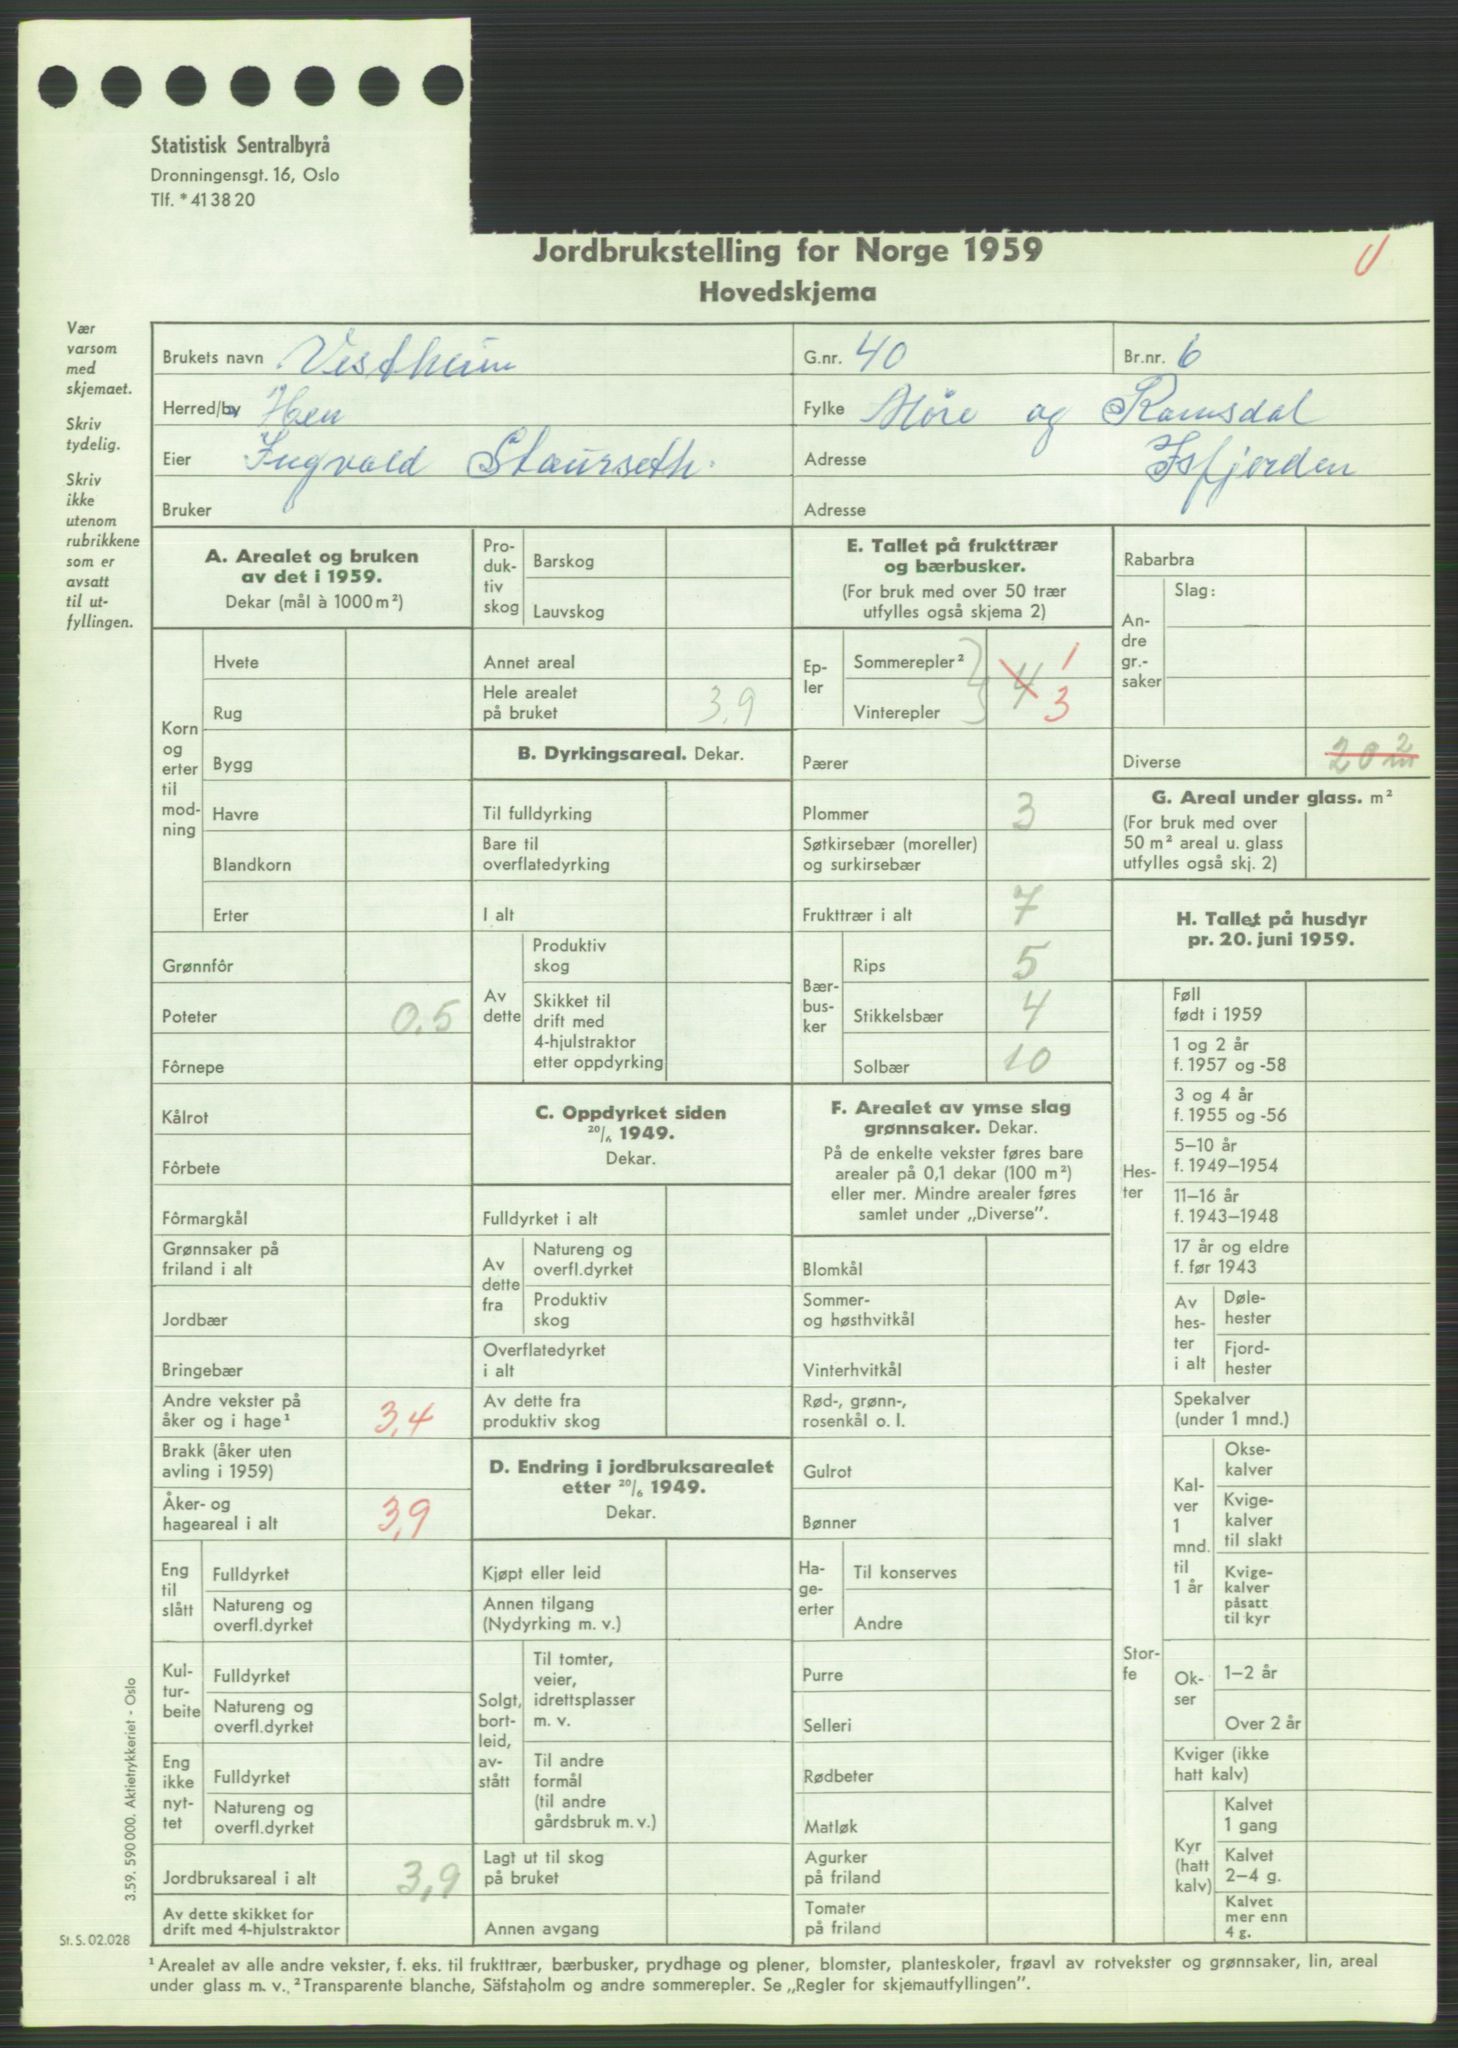 Statistisk Sentralbyrå
Dronningensgt. 16, Oslo
Tlf. * 41 38 20
Jordbrukstelling for Norge 1959
Hovedskjema
Vær
varsom
med
skjemaet.
Skriv
tydelig.
Skriv
ikke
utenom
rubrikkene
som er
avsatt
til ut-
fyllingen.
Brukets navn Vestheim G.nr. 40 Br.nr. 6
Herred/by Hen Fylke Møre og Romsdal
Eier Ingvald Staurseth Adresse Isfjorden
Bruker Adresse
A. Arealet og bruken
av det i 1959.
Dekar (mål à 1000 m²)
Korn
og
erter
til
mod-
ning
Hvete
Rug
Bygg
Havre
Blandkorn
Erter
Grønnfôr
Poteter 0,5
Fôrnepe
Kålrot
Fôrbete
Fôrmargkål
Grønnsaker på
friland i alt
Jordbær
Bringebær
Andre vekster på
åker og i hage¹ 3,4
Brakk (åker uten
avling i 1959)
Åker- og
hageareal i alt 3,9
Eng
til
slått
Fulldyrket
Natureng og
overfl.dyrket
Kul-
tur-
beite
Fulldyrket
Natureng og
overfl.dyrket
Eng
ikke
nyt-
tet
Fulldyrket
Natureng og
overfl.dyrket
Jordbruksareal i alt 3,9
Av dette skikket for
drift med 4-hjulstraktor
Pro-
duk-
tiv
skog
Barskog
Lauvskog
Annet areal
Hele arealet
på bruket 3,9
B. Dyrkingsareal. Dekar.
Til fulldyrking
Bare til
overflatedyrking
I alt
Av
dette
Produktiv
skog
Skikket til
drift med
4-hjulstraktor
etter oppdyrking
C. Oppdyrket siden
20/6 1949.
Dekar.
Fulldyrket i alt
Av
dette
fra
Natureng og
overfl.dyrket
Produktiv
skog
Overflatedyrket
i alt
Av dette fra
produktiv skog
D. Endring i jordbruksarealet
etter 20/6 1949.
Dekar.
Kjøpt eller leid
Annen tilgang
(Nydyrking m. v.)
Solgt,
bort-
leid,
av-
stått
Til tomter,
veier,
idrettsplasser
m. v.
Til andre
formål
(til andre
gårdsbruk m. v.)
Lagt ut til skog
på bruket
Annen avgang
E. Tallet på frukttrær
og bærbusker.
(For bruk med over 50 trær
utfylles også skjema 2)
Ep-
ler
Sommerepler² 4 1
Vinterepler 3
Pærer
Plommer 3
Søtkirsebær (moreller)
og surkirsebær
Frukttrær i alt 7
Bær-
bus-
ker
Rips 5
Stikkelsbær 4
Solbær 10
F. Arealet av ymse slag
grønnsaker. Dekar.
På de enkelte vekster føres bare
arealer på 0,1 dekar (100 m²)
eller mer. Mindre arealer føres
samlet under „Diverse”.
Blomkål
Sommer-
og høsthvitkål
Vinterhvitkål
Rød-, grønn-,
rosenkål o. l.
Gulrot
Bønner
Ha-
ge-
erter
Til konserves
Andre
Purre
Selleri
Rødbeter
Matløk
Agurker
på friland
Tomater
på friland
Rabarbra
An-
dre
gr.-
saker
Slag:
Diverse 20 m²
G. Areal under glass. m²
(For bruk med over
50 m² areal u. glass
utfylles også skj. 2)
H. Tallet på husdyr
pr. 20. juni 1959.
Hes-
ter
Føll
født i 1959
1 og 2 år
f. 1957 og -58
3 og 4 år
f. 1955 og -56
5–10 år
f. 1949–1954
11–16 år
f. 1943–1948
17 år og eldre
f. før 1943
Av
hes-
ter
i alt
Døle-
hester
Fjord-
hester
Stor-
fe
Spekalver
(under 1 mnd.)
Kal-
ver
1
mnd.
til
1 år
Okse-
kalver
Kvige-
kalver
til slakt
Kvige-
kalver
påsatt
til kyr
Ok-
ser
1–2 år
Over 2 år
Kviger (ikke
hatt kalv)
Kyr
(hatt
kalv)
Kalvet
1 gang
Kalvet
2–4 g.
Kalvet
mer enn
4 g.
3.59. 590 000. Aktietrykkeriet - Oslo
St. S. 02.028
¹ Arealet av alle andre vekster, f. eks. til frukttrær, bærbusker, prydhage og plener, blomster, planteskoler, frøavl av rotvekster og grønnsaker, lin, areal
under glass m. v. ² Transparente blanche, Säfstaholm og andre sommerepler. Se „Regler for skjemautfyllingen”.